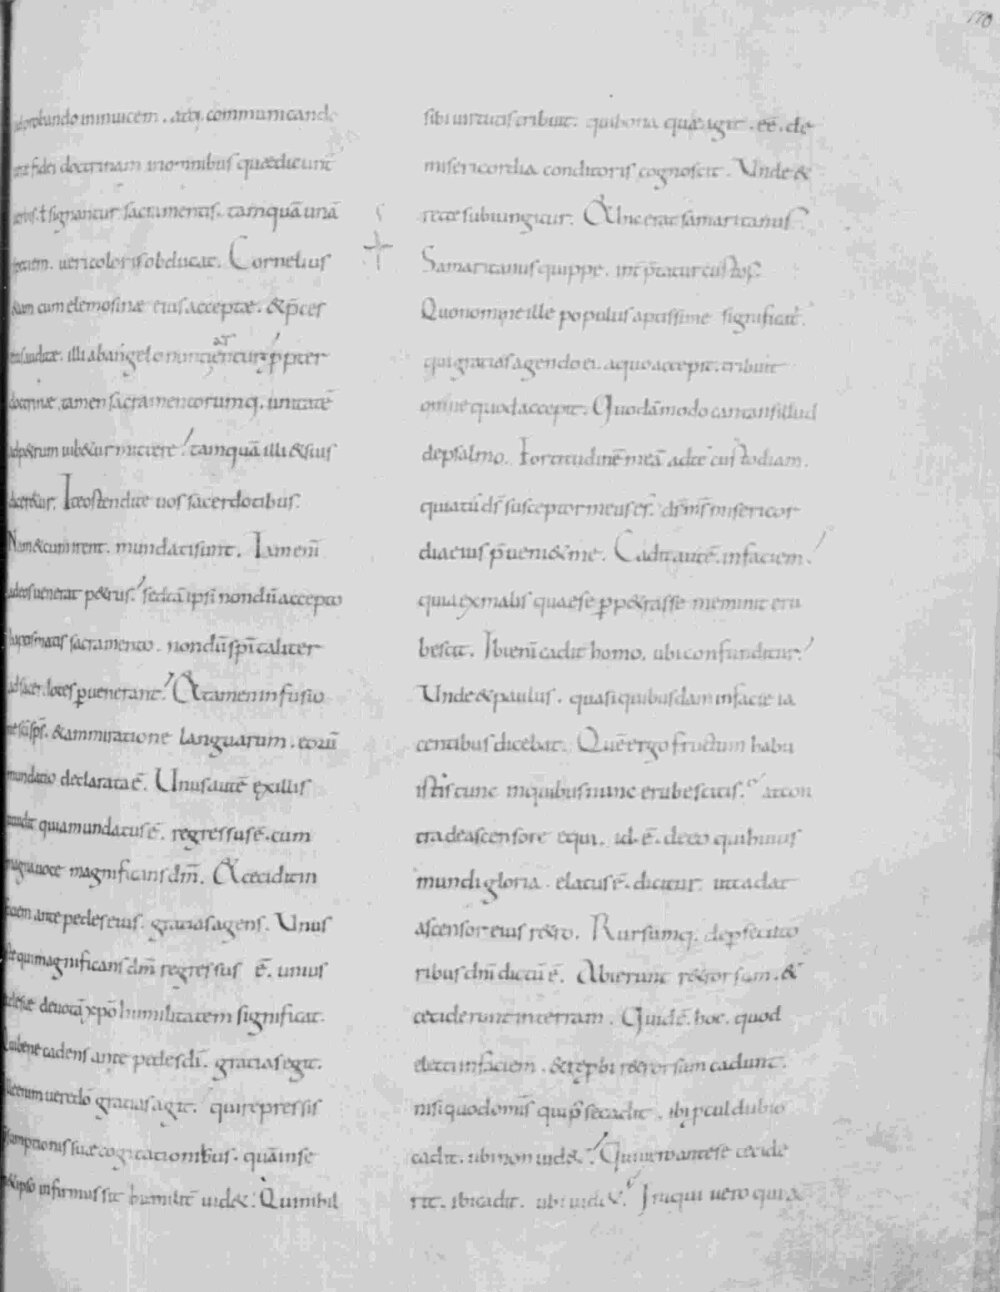 170
docendo inınuicem. atq; communicando
fidei doctrinam inomnibus quædicunt
signantur sacramentis. tamquā unā
speciem. ueri coloris obducat. Cornelius
&iam cum elemosinæ eius acceptæ. & p̄ces
exauditæ. illi abangelo nuntientur, ppter
doctrinæ. tamen sacramentorumq. unitatē
adp&rum iub&ur mittere! tamquā illi & suis
dicer&ur; Ite ostendite uos sacerdotibus.
Nam & cum irent. mundati sunt. Iam enī
adeos uenerat p&rus! sed tā ipsi nondū accepto
baptismatis sacramento. nondū sp̄italiter
ad sacerdotes puenerant! At tamen infusio
ne scī sp̄s. & ammiratione languarum. eorū
mundatio declarata ē. Unus autē ex illis
uidit quia mundatus ē. regressus ē. cum
magna uoce magnificans dm̄. Et cecidit in
faciem ante pedes eius. gratias agens. Unus
iste qui magnificans dm̄ regressus ē. unius
ecclesiæ deuotā xp̄o humilitatem significat.
Qui bene cadens ante pedes dī. gratias egit.
Illeenim uere dō gratias agit. qui repressis
p̄sumptionis suæ cogitationibus. quā in se
&ipso infirmus sit humilit̄ uid&. Qui nihil
sibi uirtutis tribuit. qui bona quæ agit. eē. de
misericordia conditoris cognoscit. Unde &
recte subiungitur. Et hic erat samaritanus.
Samaritanus quippe. int̄p̄tatur custos.
Quo nomine ille populus aptissime significat̄.
qui gratias agendo ei. a quo accepit. tribuit
omne quod accepit. Quodā modo cantans illud
de psalmo. Fortitudinē meā ad te custodiam.
quia tu ds̄ susceptor meus es. ds̄ ms̄ misericor
dia eius p̄ueni& me. Cadit autē. in faciem.
quia ex malis quæ se pp&rasse meminit eru
bescit. Ibi enī cadit homo. ubi confunditur.
Unde & paulus. quasi quibusdam in facie ia
centibus dicebat. Quē ergo fructum habu
istis tunc in quibus nunc erubescitis. at con
tra de ascensore equi. id ē. de eo qui huius
mundi gloria. elatus ē. dicitur. ut cadat
ascensor eius r&ro. Rursumq. de psecuto
ribus dnī dictū ē. Abierunt r&rorsum. &
ceciderunt in terram. Quid ē. hoc. quod
electi in faciem. & repbi r&rorsum cadunt.
nisi quod om̄is qui p̄ se cadit. ibi pcul dubio
cadit. ubi non uid&. Qui uero ante se cecide
rit. ibi cadit. ubi uid&. Iniqui uero quia